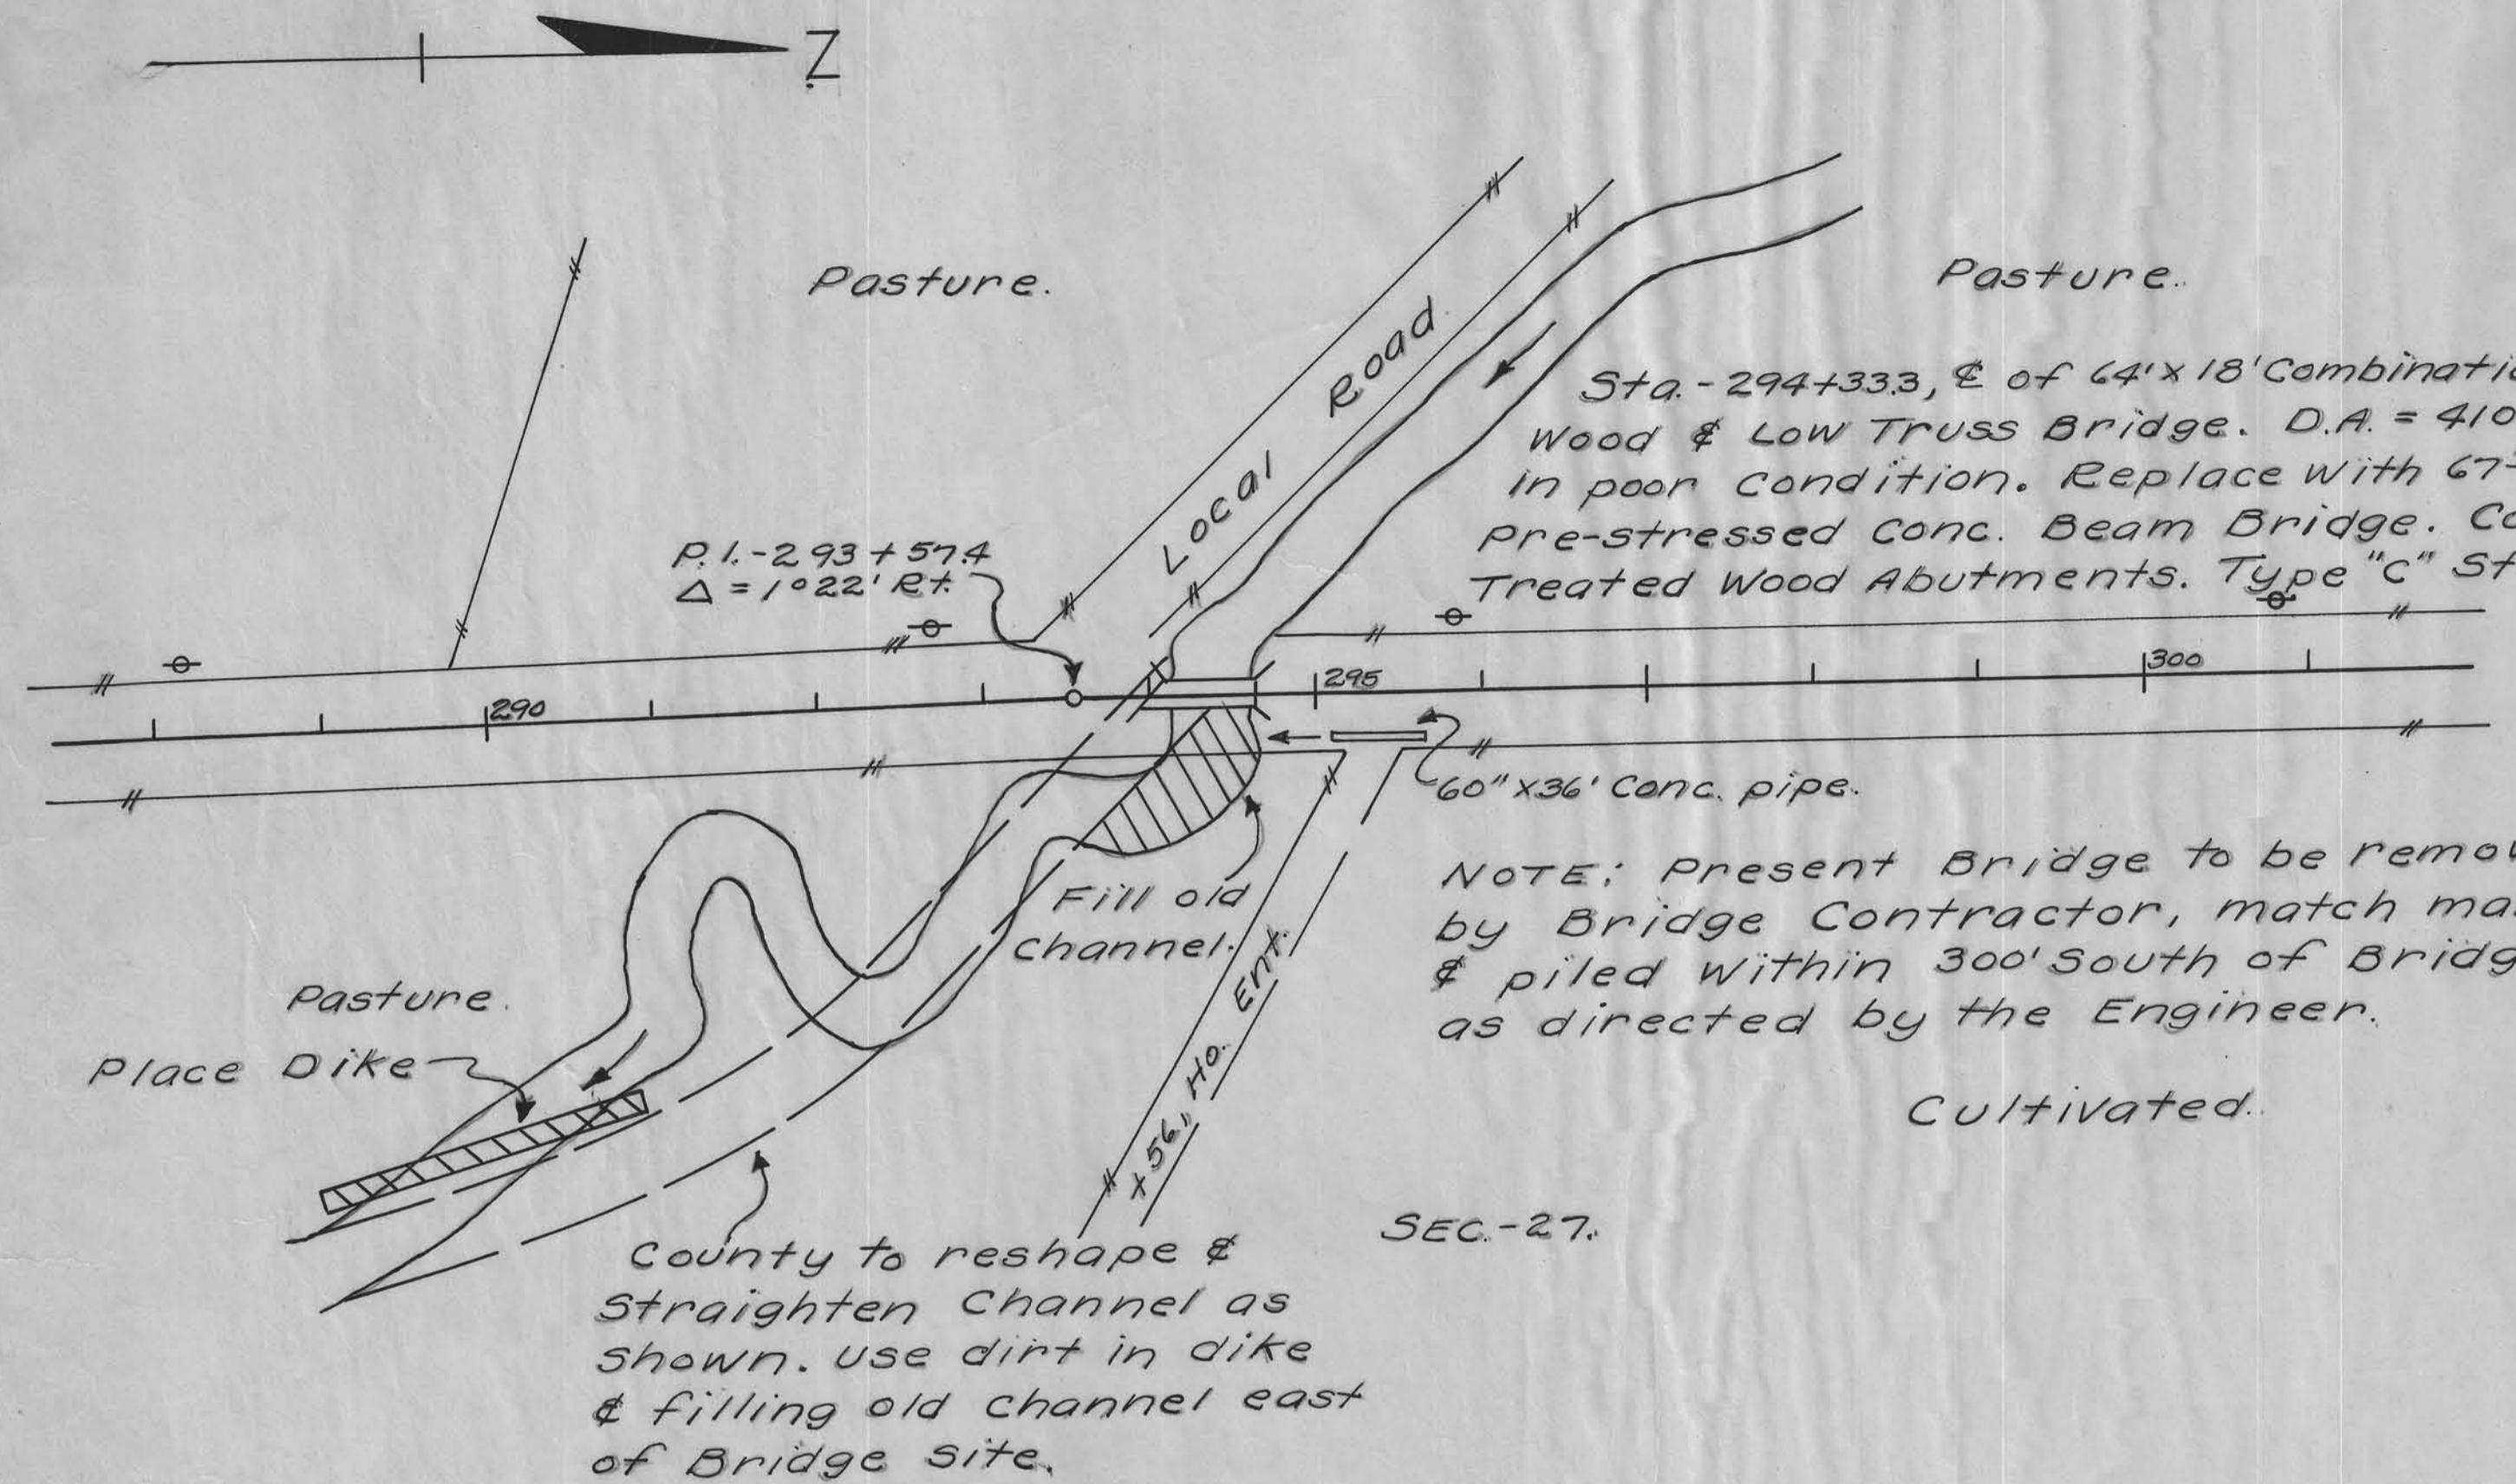 N.
Pasture.
Pasture.
Local Road
Sta.-294+33.3, ℄ of 64'x18' Combinatio
Wood & Low Truss Bridge. D.A. = 410
in poor condition. Replace with 67-
Pre-stressed Conc. Beam Bridge. Co
Treated Wood Abutments. Type "C" St
P.I.-293+57.4
Δ = 1°22' Rt.
290
295
300
60"x36' Conc. pipe.
NOTE: Present Bridge to be remov
by Bridge Contractor, match ma
& piled within 300' South of Bridg
as directed by the Engineer.
Fill old
Channel.
+56, Ho. Ent.
Pasture.
Place Dike
Cultivated.
SEC.-27.
County to reshape &
Straighten Channel as
shown. use dirt in dike
& filling old channel east
of Bridge site.